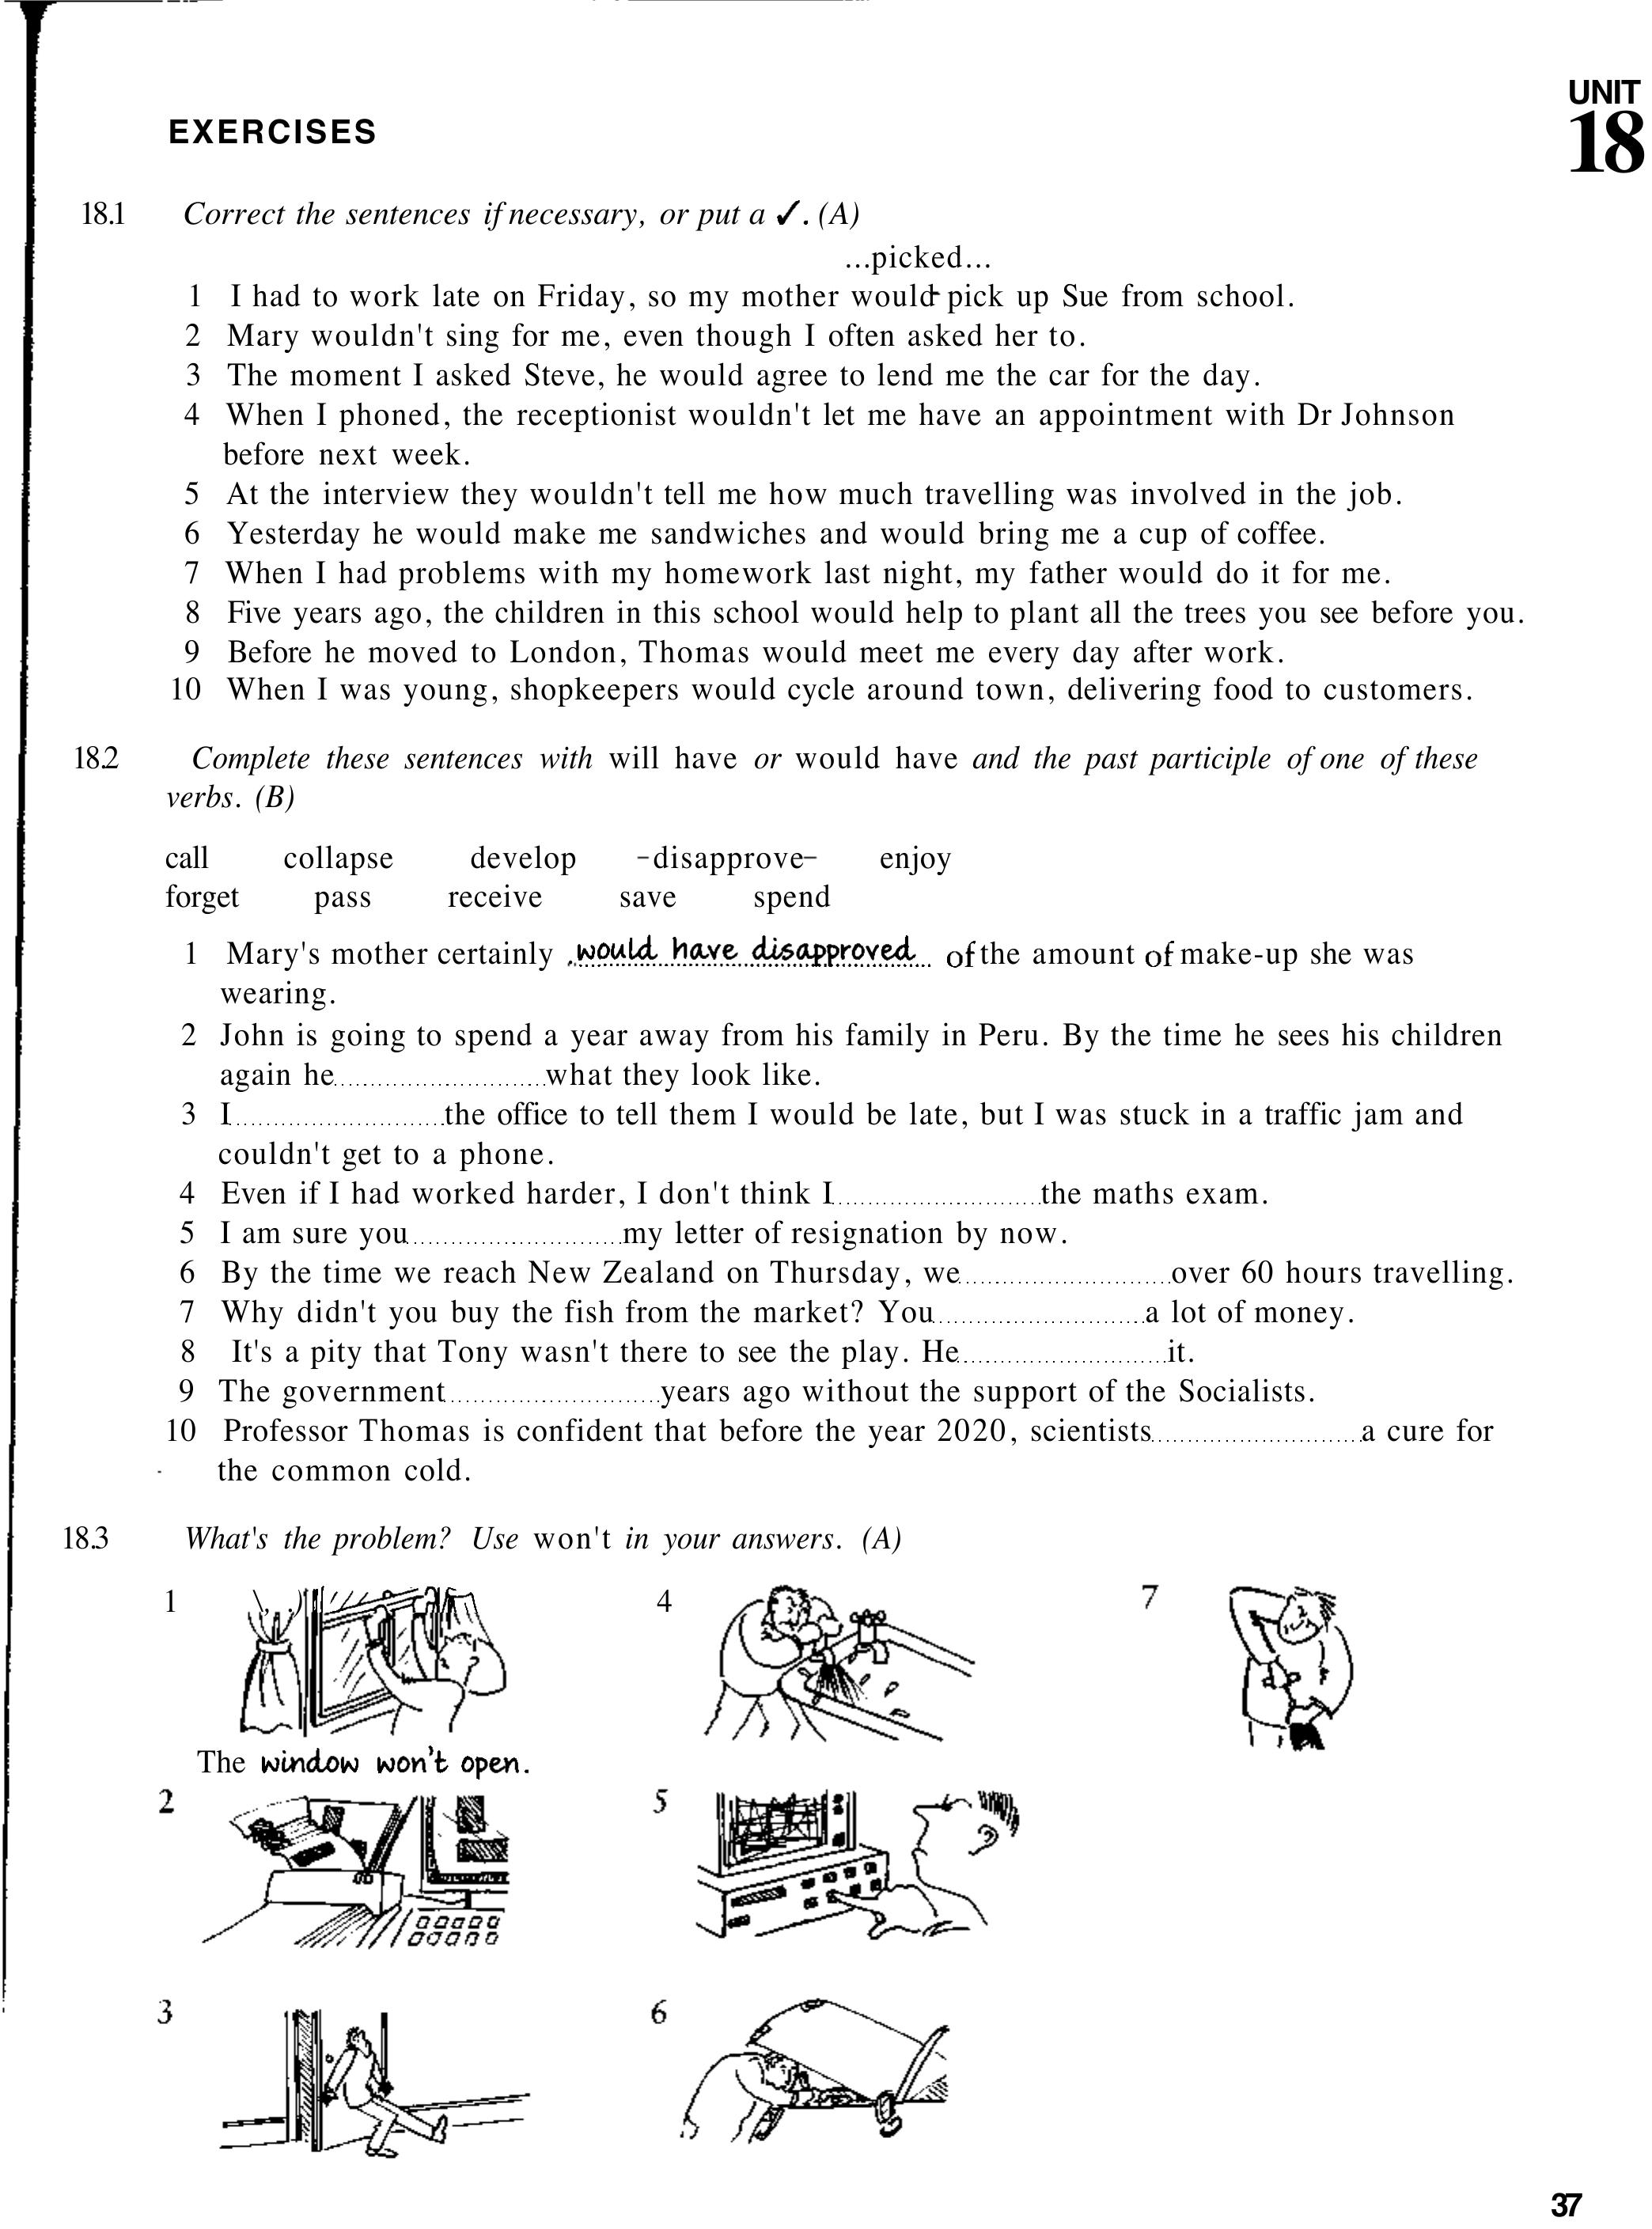 UNIT
18
EXERCISES
18.1 Correct the sentences if necessary, or put a ✓. (A)
...picked...
1 I had to work late on Friday, so my mother would pick up Sue from school.
2 Mary wouldn't sing for me, even though I often asked her to.
3 The moment I asked Steve, he would agree to lend me the car for the day.
4 When I phoned, the receptionist wouldn't let me have an appointment with Dr Johnson
before next week.
5 At the interview they wouldn't tell me how much travelling was involved in the job.
6 Yesterday he would make me sandwiches and would bring me a cup of coffee.
7 When I had problems with my homework last night, my father would do it for me.
8 Five years ago, the children in this school would help to plant all the trees you see before you.
9 Before he moved to London, Thomas would meet me every day after work.
10 When I was young, shopkeepers would cycle around town, delivering food to customers.
18.2 Complete these sentences with will have or would have and the past participle of one of these
verbs. (B)
call collapse develop -disapprove- enjoy
forget pass receive save spend
1 Mary's mother certainly would have disapproved of the amount of make-up she was
wearing.
2 John is going to spend a year away from his family in Peru. By the time he sees his children
again he.............................what they look like.
3 I.............................the office to tell them I would be late, but I was stuck in a traffic jam and
couldn't get to a phone.
4 Even if I had worked harder, I don't think I.............................the maths exam.
5 I am sure you.............................my letter of resignation by now.
6 By the time we reach New Zealand on Thursday, we.............................over 60 hours travelling.
7 Why didn't you buy the fish from the market? You.............................a lot of money.
8 It's a pity that Tony wasn't there to see the play. He.............................it.
9 The government.............................years ago without the support of the Socialists.
10 Professor Thomas is confident that before the year 2020, scientists.............................a cure for
the common cold.
18.3 What's the problem? Use won't in your answers. (A)
1 4 7
The window won't open.
2 5
3 6
37